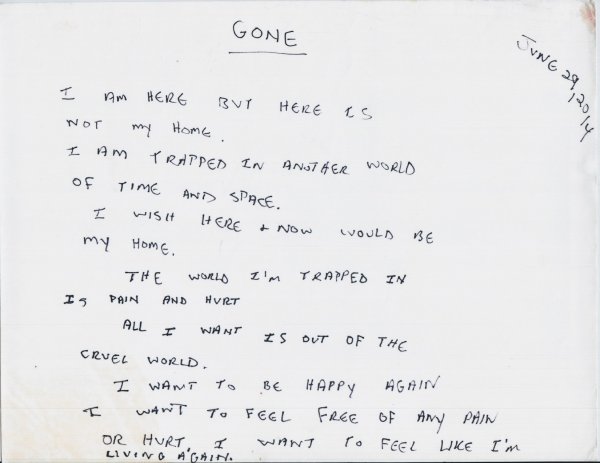 GONE
JUNE 29/2014
I AM HERE BUT HERE IS
NOT MY HOME.
I AM TRAPPED IN ANOTHER WORLD
OF TIME AND SPACE.
I WISH HERE + NOW WOULD BE
MY HOME.
THE WORLD I'M TRAPPED IN
IS PAIN AND HURT
ALL I WANT IS OUT OF THE
CRUEL WORLD.
I WANT TO BE HAPPY AGAIN
I WANT TO FEEL FREE OF ANY PAIN
OR HURT, I WANT TO FEEL LIKE I'M
LIVING AGAIN.